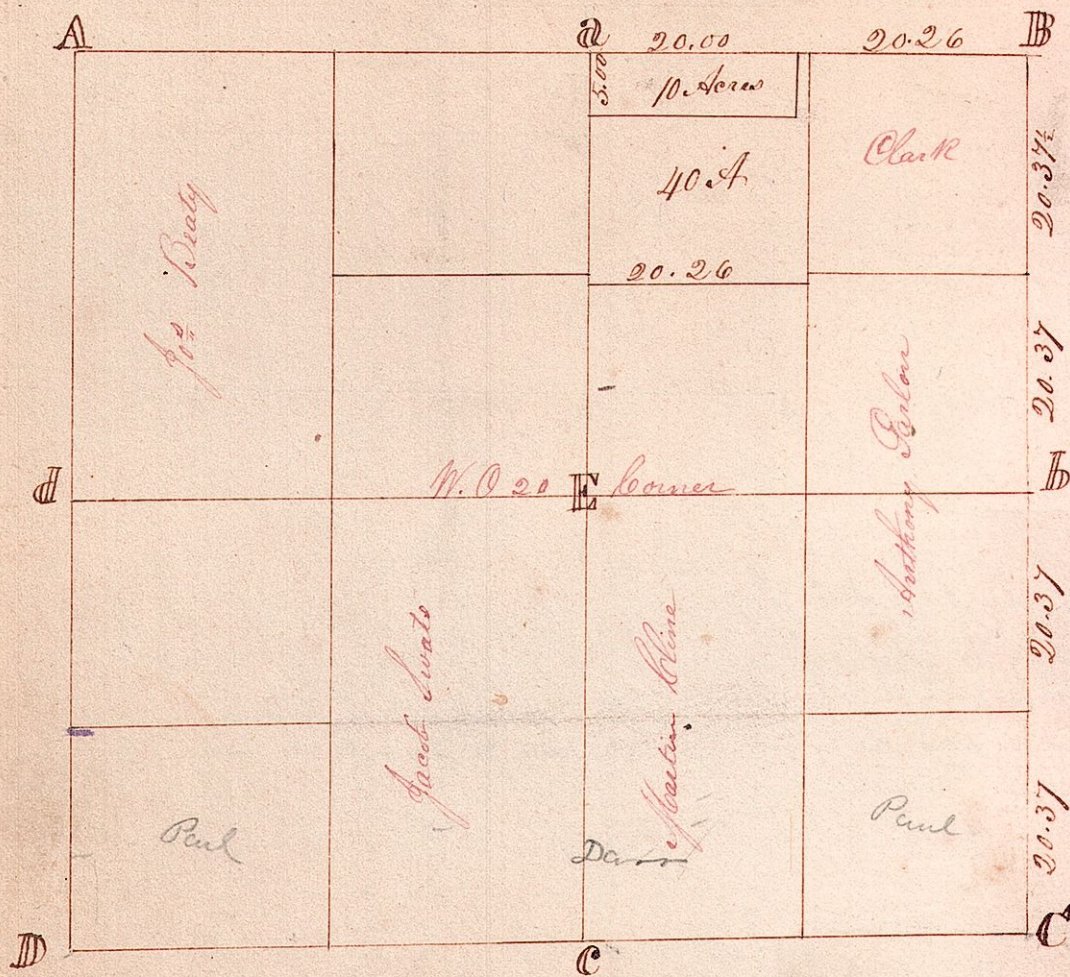 A a 20.00 20.26 B
5.00 10 Acres
40 A
Clark
20.37½
Jos Beaty
20.26
20.37
Anthony Parlon
d W. O 20 E Corner b
20.37
Jacob Swats
Martin Cline
20.37
Paul
Paul
D c C